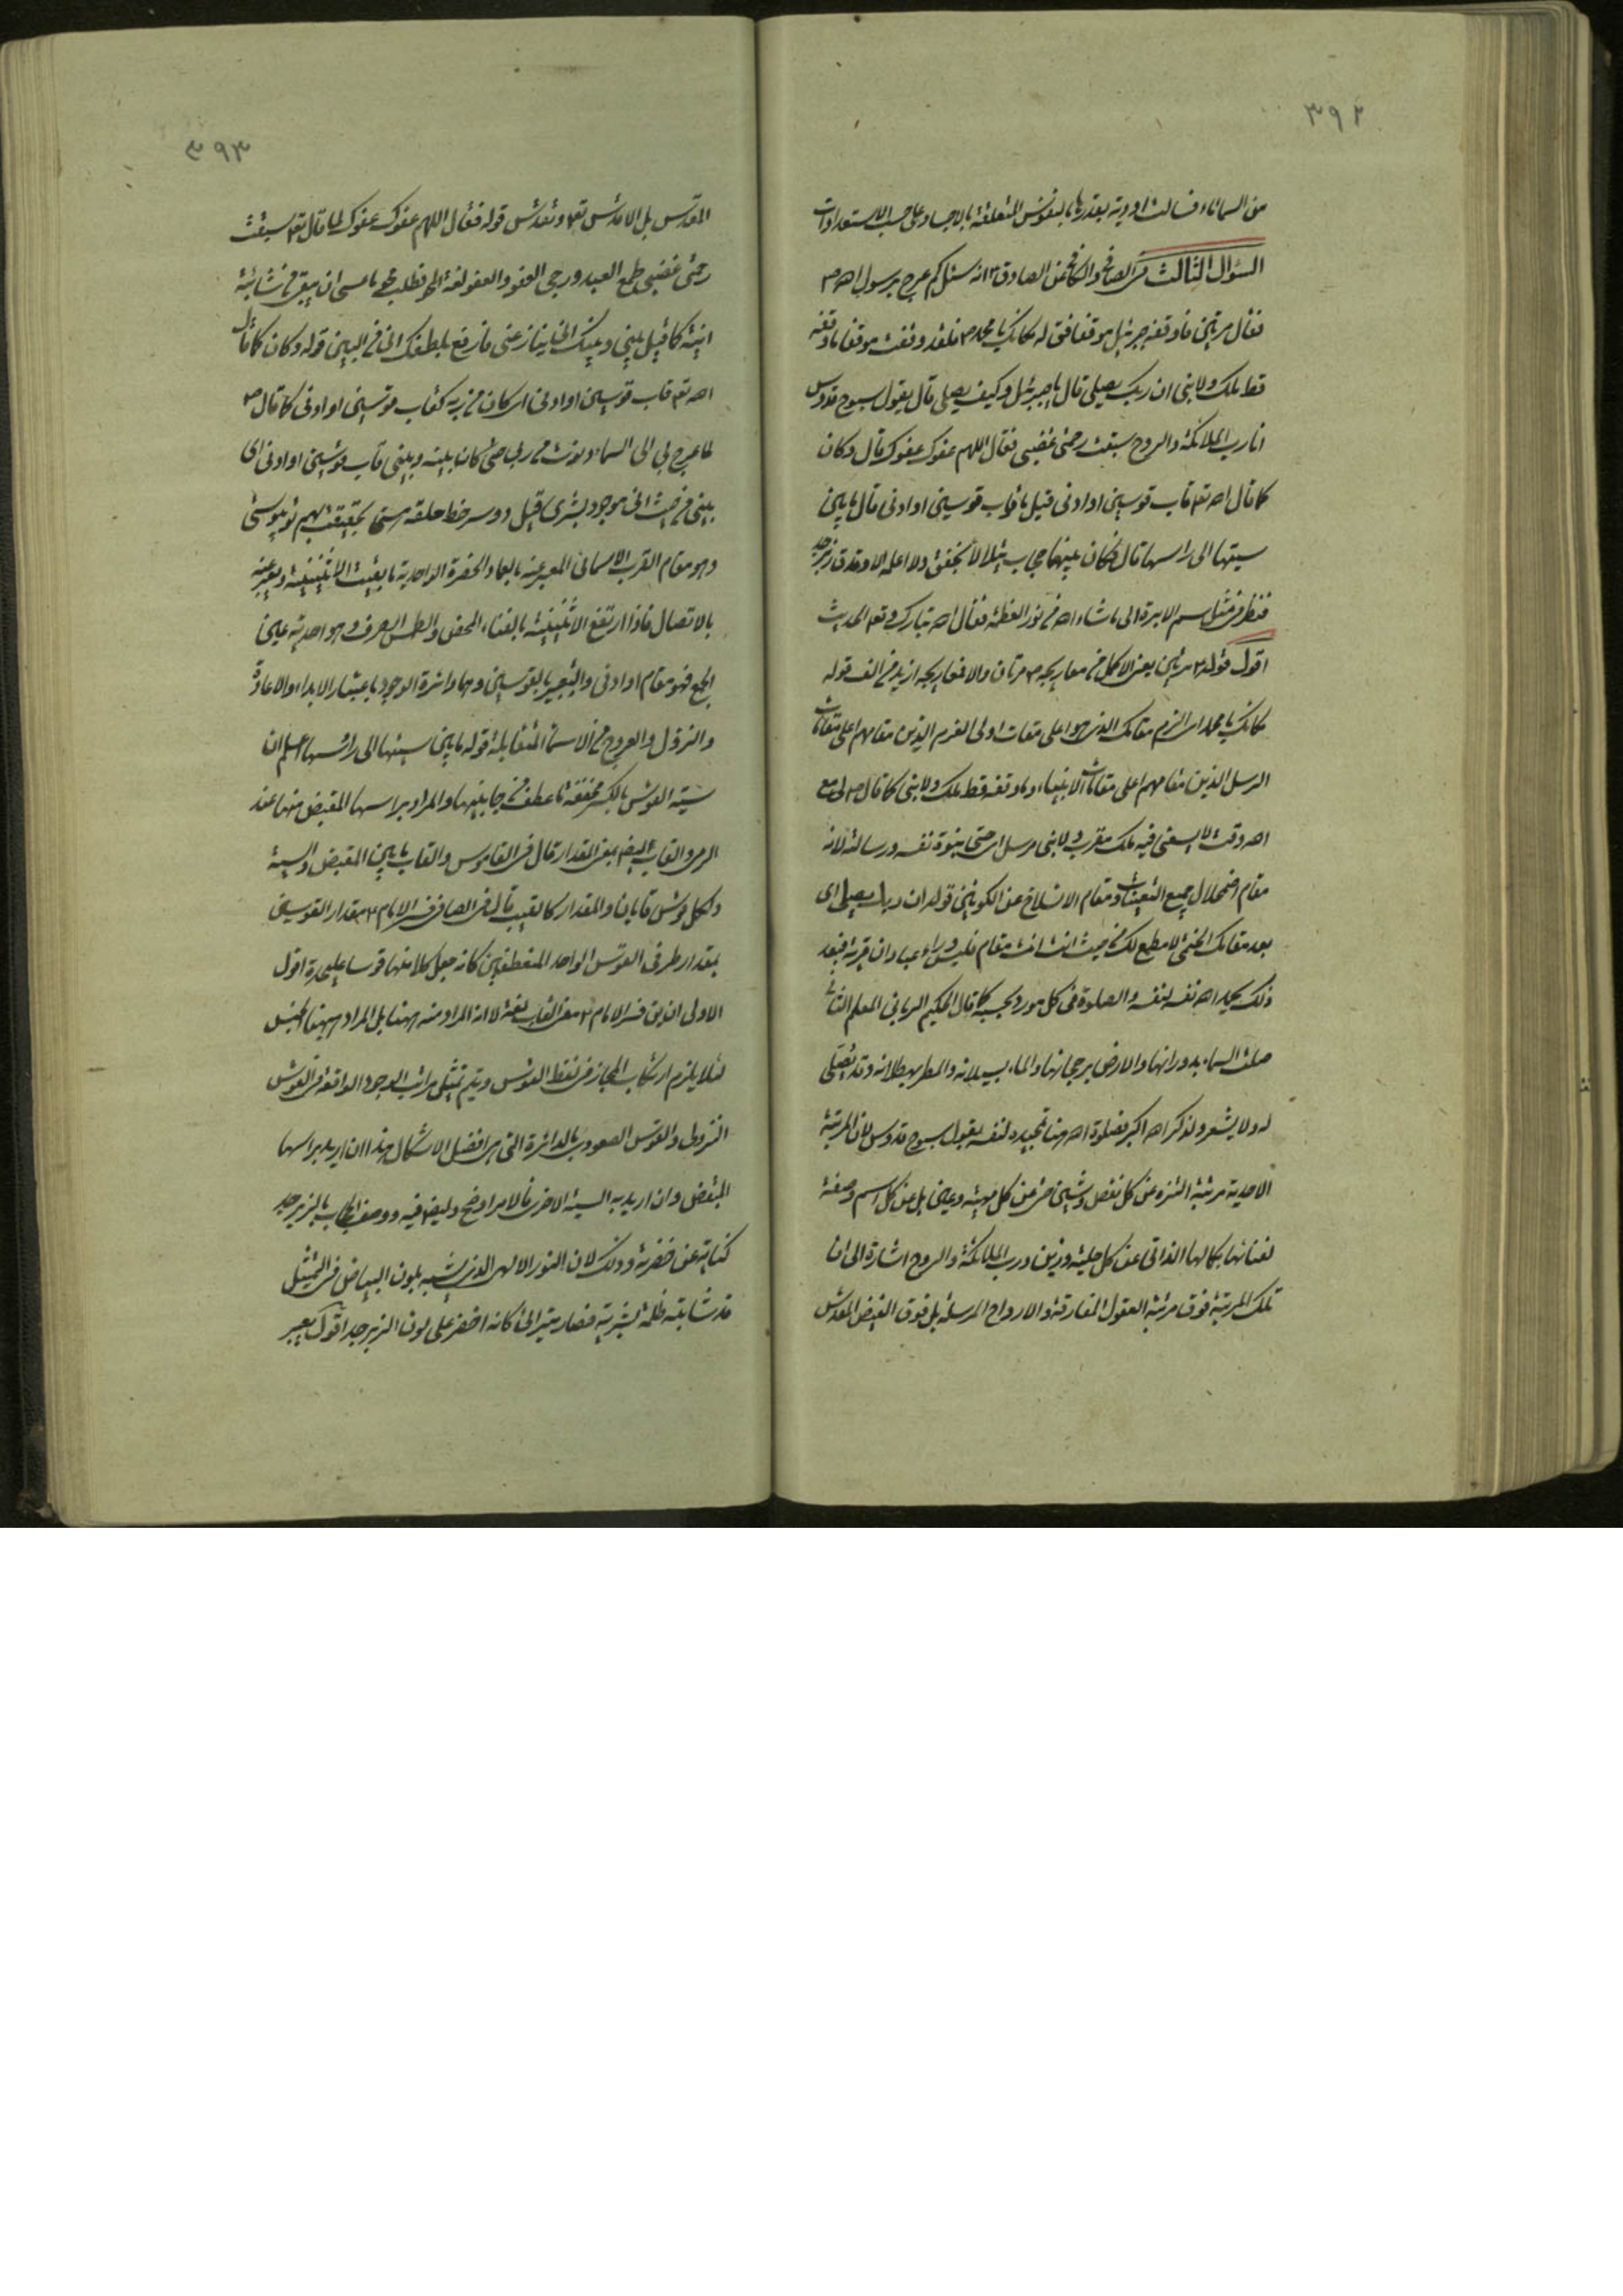 ٣٩٢
من السماء ماء فسالت اودية بقدرها بالنفوس المتعلقة بالاجساد على حسب الاستعدادات
السؤال الثالث فى الصافى والكافى عن الصادق ع انه سئل كم عرج برسول الله ص
فقال مرتين فاوقفه جبرئيل موقفا فق له مكانك يا محمد ص فلقد وقفت موقفا ما وقفه
قط ملك ولا نبى ان ربك يصلى قال يا جبرئيل وكيف يصلى قال يقول سبوح قدوس
انا رب الملائكة والروح سبقت رحمتى غضبى فقال اللهم عفوك عفوك قال وكان
كما قال الله تع قاب قوسين او ادنى قيل ما قاب قوسين او ادنى قال ما بين
سيتها الى راسها قال فكان بينهما حجاب يتلألأ بخفق ولا اعلمه الا وقد قال زبرجد
فنظر فى مثل سم الابرة الى ما شاء الله من نور العظمة فقال الله تبارك وتع الحديث
اقول قوله ع مرتين يعنى الاكمل من معاريجه ص مرتان والا فمعاريجه ازيد من الف قوله
مكانك يا محمد اى الزم مقامك الذى هو اعلى مقامات اولى العزم الذين مقامهم اعلى مقامات
الرسل الذين مقامهم اعلى مقامات الانبياء وما وقفه قط ملك ولا نبى كما قال ص لى مع
الله وقت لا يسعنى فيه ملك مقرب ولا نبى مرسل اى حتى نبوة نفسه ورسالته لانه
مقام اضمحلال جميع التعينات ومقام الانسلاخ عن الكونين قوله ان ربك يصلى اى
بعد مقامك الختمى لا مطمع لك من حيث انت انت مقام فليس وراء عبادان قرية فبعد
ذلك يحمد الله نفسه لنفسه والصلوة فى كل مورد بحسبه كما قال الحكيم الربانى المعلم الثانى
صلت السماء بدورانها والارض برجحانها والماء بسيلانه والمطر بهطلانه وقد يصلى
له ولا يشعر ولذكر الله اكبر فصلوة الله هنا تمجيده لنفسه بقول سبوح قدوس لان المرتبة
الاحدية مرتبة التنزه عن كل نقص وشين حتى عن كل مهية وعين بل عن كل اسم وصفة
لغنائها بكمالها الذاتى عن كل حلية وزين ورب الملائكة والروح اشارة الى ان
تلك المرتبة فوق مرتبة العقول المفارقة والارواح المرسلة بل فوق الفيض المقدس
٣٩٣
المقدس بل الاقدس تع وتقدس قوله فقال اللهم عفوك عفوك لما قال تع سبقت
رحمتى غضبى طمع العبد ورجى العفو والعفو لغة المحو فطلب محو ما عسى ان يبقى من شائبة
انية كما قيل بينى وبينك انى ينازعنى فارفع بلطفك انى من البين قوله وكان كما قال
الله تع قاب قوسين او ادنى اى كان من ربه كقاب قوسين او ادنى كما قال ص
لما عرج بى الى السماء ودنوت من ربى حتى كان بينه وبينى قاب قوسين او ادنى اى
بينى من حيث انى موجود بشرى قيل دو سر خط حلقه هستى بحقيقت بهم تو پيوستى
وهو مقام القرب الاسمائى المعبر عنه بالعماء والحضرة الواحدية ما بقيت الاثنينية ويعبر عنه
بالاتصال فاذا ارتفع الاثنينية بالفناء المحض والطمس الصرف وهو احدية عين
الجمع فهو مقام او ادنى والتعبير بالقوسين وهما دائرة الوجود باعتبار الابداء والاعادة
والنزول والعروج من الاسماء المتقابلة قوله ما بين سيتها الى راسها اعلم ان
سية القوس بالكسر مخففة ما عطف من جانبيها والمراد براسها المقبض منها عند
الرمى والقاب ايضا بمعنى المقدار قال فى القاموس والقاب ما بين المقبض والسية
ولكل قوس قابان والمقدار كالقيب قال فى الصافى فسر الامام ع مقدار القوسين
بمقدار طرفى القوس الواحد المنعطفين كانه جعل كلا منهما قوسا عليحدة اقول
الاولى ان يق فسر الامام ع معنى القاب لغة لا انه المراد منه ههنا بل المراد ههنا الجنس
لئلا يلزم ارتكاب المجاز فى لفظ القوس ويتم تمثيل مراتب الوجود الواقعة فى القوس
النزولى والقوس الصعودى بالدائرة التى هى افضل الاشكال هذا ان اريد براسها
المقبض وان اريد به السية الاخرى فالامر اوضح وليضع فيه ووصف الحجاب بالزبرجد
كناية عن خضرته وذلك لان النور الالهى الذى يشبه بلون البياض فى التمثيل
قد شابته ظلمة بشرية فصار يتراءى كانه اخضر على لون الزبرجد اقول يعبر